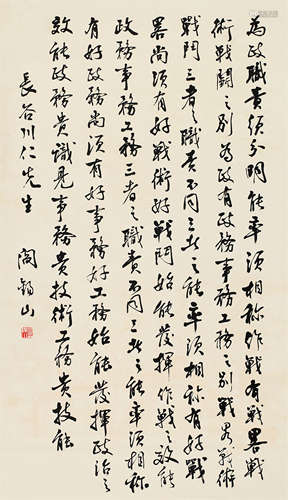 為政職責須分明能率須相称作戰有戰畧戰
術戰鬪之別為政有政務事務工務之別戰畧戰術
戰鬥三者之職責不同三者之能率須相称有好戰
畧尚須有好戰術好戰鬥始能發揮作戰之效能
政務事務工務三者之職責不同三者之能率須相称
有好政務尚須有好事務好工務始能發揮政治之
效能政務貴識見事務貴技術工務貴技能
長谷川仁先生
閻錫山